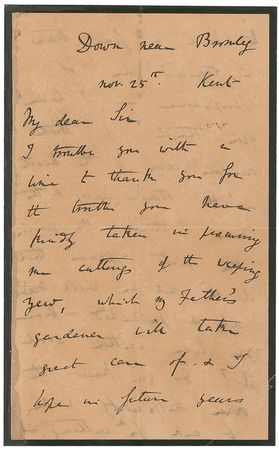 Down near Bromley
Nov. 25th. Kent
My dear Sir
I trouble you with a
line to thank you for
the trouble you have
kindly taken in procuring
me cuttings of the weeping
yew, which my Father's
gardener will take
great care of. & I
hope in future years